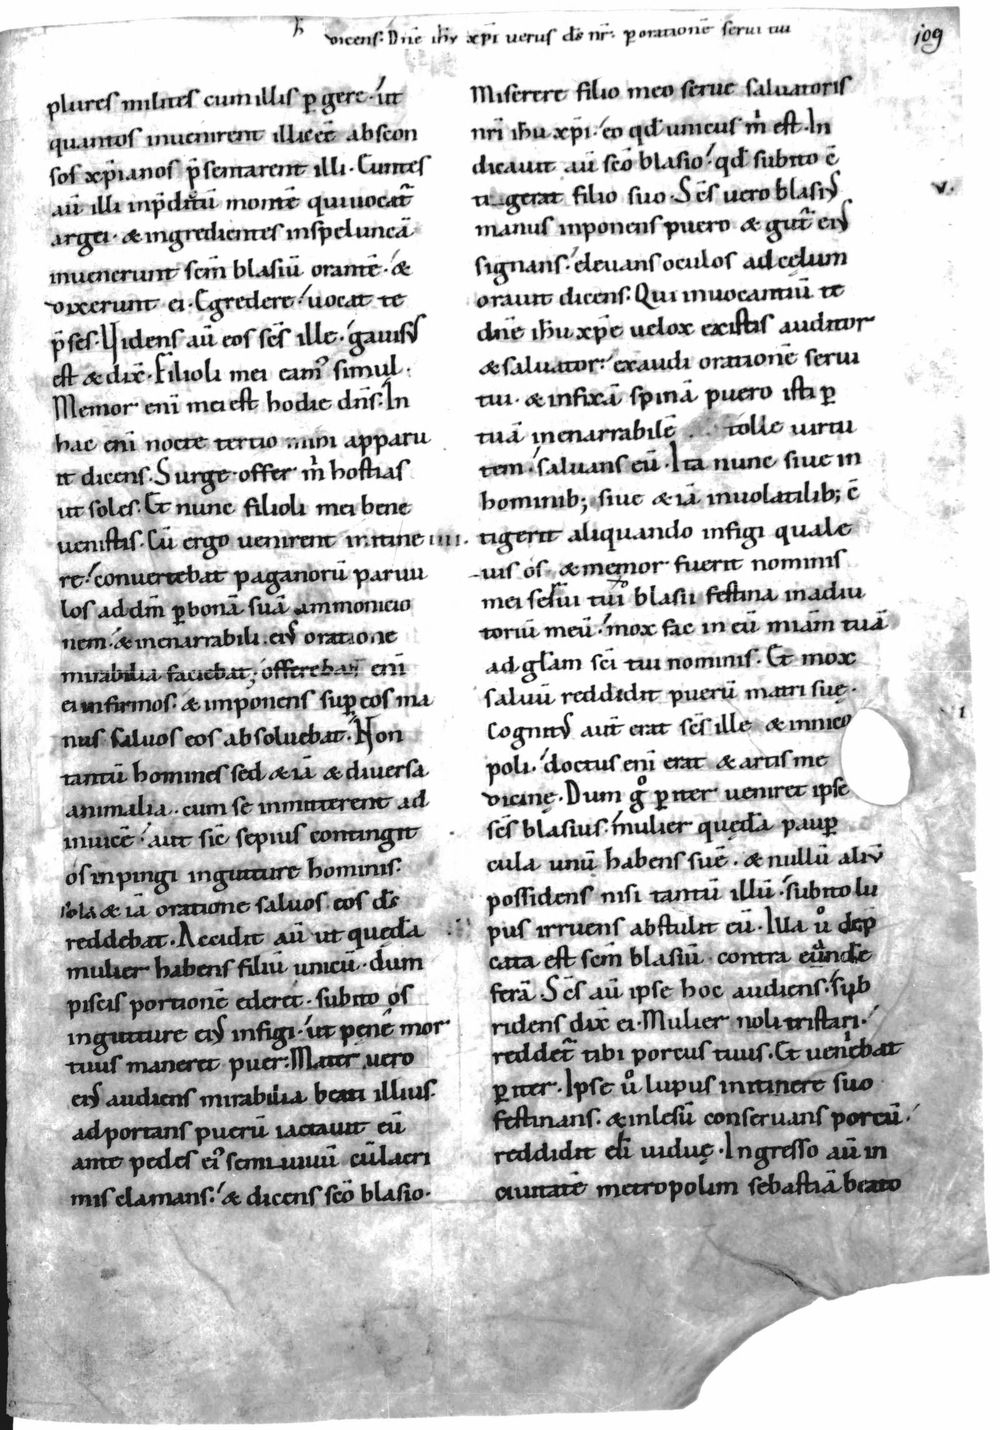 ħ dicens. Dn̄e ih̄u xp̄i uerus ds̄ nr̄. p orationē serui tui
109
plures milites cum illis pergere. ut
quantos inuenirent illic eē abscon
sos xp̄ianos p̄sentarent illi. Euntes
au̅ illi inp̄dictū montē qui uocat᷑
argei. & ingredientes inspeluncā
inuenerunt sc̄m blasiū orantē. &
dixerunt ei. Egredere. uocat te
p̄ses. Uidens au̅ eos sc̄s ille. gauisus
est & dix̄. Filioli mei eam᷒ simul.
Memor enī mei est hodie dn̄s. In
hac enī nocte tertio mihi apparu
it dicens. Surge. offer m̄ hostias
ut soles. Et nunc filioli mei bene
uenistis. Cū ergo uenirent in itine
re. conuertebat paganorū paruu
los ad dm̄ p bonā suā ammonicio
nem. & inenarrabili. eius oratione
mirabilia faciebat; offerebant enī
ei infirmos. & imponens sup eos ma
nus saluos eos absoluebat. Non
tantū homines sed & iā & diuersa
animalia. cum se inmitterent ad
inuicē. aut sic̄ sepius contingit
os inpingi ingutture hominis.
sola & iā oratione saluos eos ds̄
reddebat. Accidit au̅ ut quedā
mulier habens filiū unicū. dum
piscis portionē ederet. subito os
ingutture eius infigi. ut pene mor
tuus maneret puer. Mater uero
eius audiens mirabilia beati illius.
adportans puerū iactauit eū
ante pedes ei᷒ semiuiuū cū lacri
mis clamans. & dicens sc̄o blasio.
Miserere filio meo serue saluatoris
nr̄i ih̄u xp̄i. eo qd̄ unicus m̄ est. In
dicauit au̅ sc̄o blasio. qd̄ subito c̄
tigerat filio suo. Sc̄s uero blasius
v.
manus inponens puero & gut̄ eius
signans. eleuans oculos ad celum
orauit dicens. Qui inuocantiū te
dn̄e ih̄u xp̄e uelox existis auditor
& saluator. exaudi orationē serui
tui. & infixā spinā puero isti p
tuā inenarrabilē tolle uirtu
tem. saluans eū. Ita nunc siue in
hominib; siue & iā inuolatilib; c̄
iiii. tigerit aliquando infigi quale
uis os. & memor fuerit nominis
mei serui tui xp̄o blasii festina in adiu
toriū meū. mox fac in eū mīam tuā
ad gl̄am sc̄i tui nominis. Et mox
saluū reddidit puerū matri suę.
Cognitus aut̄ erat sc̄s ille & in nico
poli. doctus enī erat & artis me
dicinę. Dum g̊ pariter ueniret ipse
sc̄s blasius. mulier quedā paup
cula unū habens suē. & nullū aliud
possidens nisi tantū illū. subito lu
pus irruens abstulit eū. Illa ů dep̄
cata est sc̄m blasiū contra eundē
ferā. Sc̄s au̅ ipse hoc audiens. sub
ridens dix̄ ei. Mulier noli tristari.
reddet᷑ tibi porcus tuus. Et ueniebat
pariter. Ipse ů lupus initinere suo
festinans. & inlesū conseruans porcū.
reddidit eū uiduę. Ingresso au̅ in
ciuitatē metropolim sebastiā beato